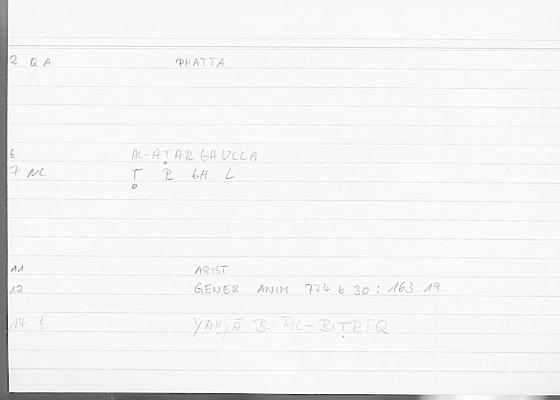 2 QA ΦHATTA
6 AL-AṬARGHULLA
7 NL Ṭ R GH L
11 ARIST
12 GENER ANIM 774 b 30 : 163.19
14 YAḤYĀ B. AL-BIṬRĪQ